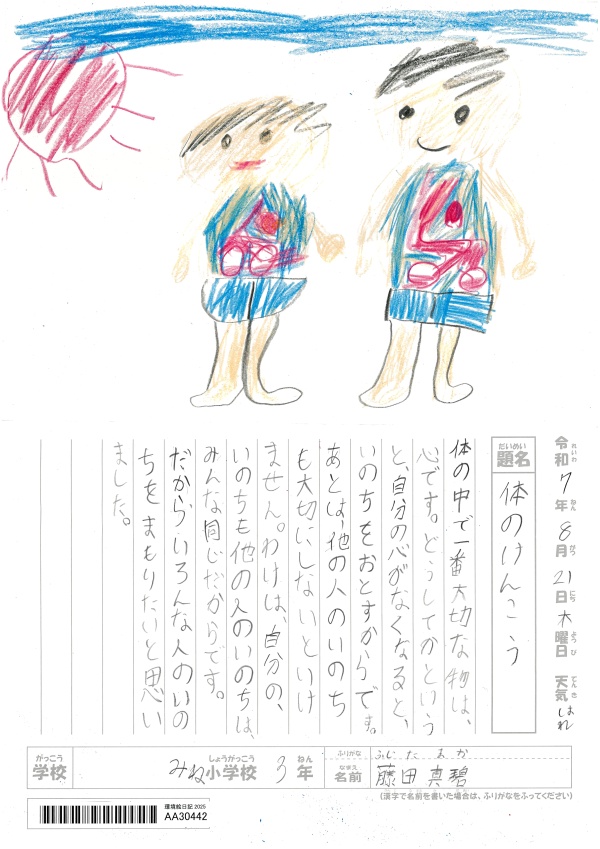 令和7年8月21日木曜日 天気はれ
れいわ ねん がつ にち ようび てんき
だいめい
題名 体のけんこう
体の中で一番大切な物は、
心です。どうしてかという
と、自分の心がなくなると、
いのちをおとすからです。
あとは、他の人のいのち
も大切にしないといけ
ません。わけは、自分の、
いのちも他の人のいのちは、
みんな同じだからです。
だから、いろんな人のいの
ちをまもりたいと思い
ました。
がっこう しょうがっこう ねん
学校 みね小学校 3年
ふりがな ふじた まか
なまえ
名前 藤田 真碧
(漢字で名前を書いた場合は、ふりがなをふってください)
環境絵日記 2025
AA30442